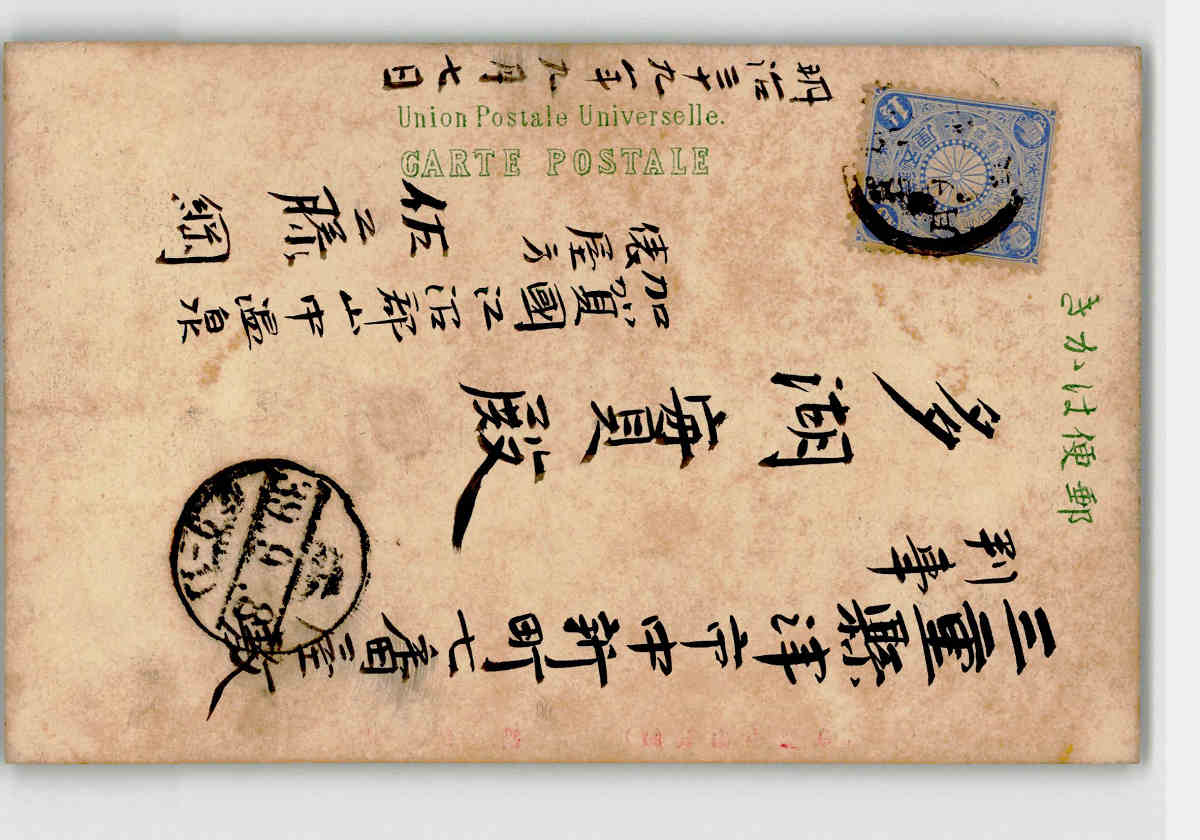 郵便はかき
三重縣津市中新町七番屋敷
判事
多湖實殿
加賀國江沼郡山中温泉
俵屋方
佐々藤綱
明治三十九年九月七日
Union Postale Universelle.
CARTE POSTALE
39.9.8